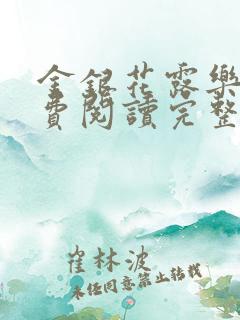 金銀花露樂
費閱讀完整
崔林波
未任同意禁止轉載